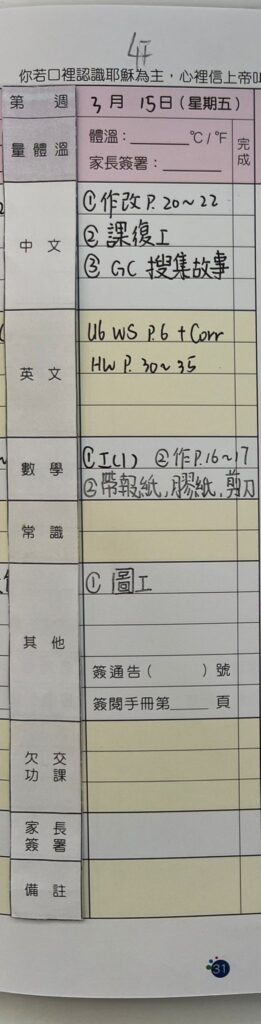 4F
你若口裡認識耶穌為主，心裡信上帝叫
第 週 3月 15日(星期五)
量體溫 體溫：______°C/°F 完成
家長簽署：______
中文 ①作改 P. 20~22
②課復工
③ GC 搜集故事
英文 U6 WS P.6 + Corr
HW P. 30~35
數學 ①工(1) ②作P.16~17
②帶報紙,膠紙,剪刀
常識
其他 ①圖工
簽通告( )號
簽閱手冊第____頁
欠交功課
家長簽署
備註
31